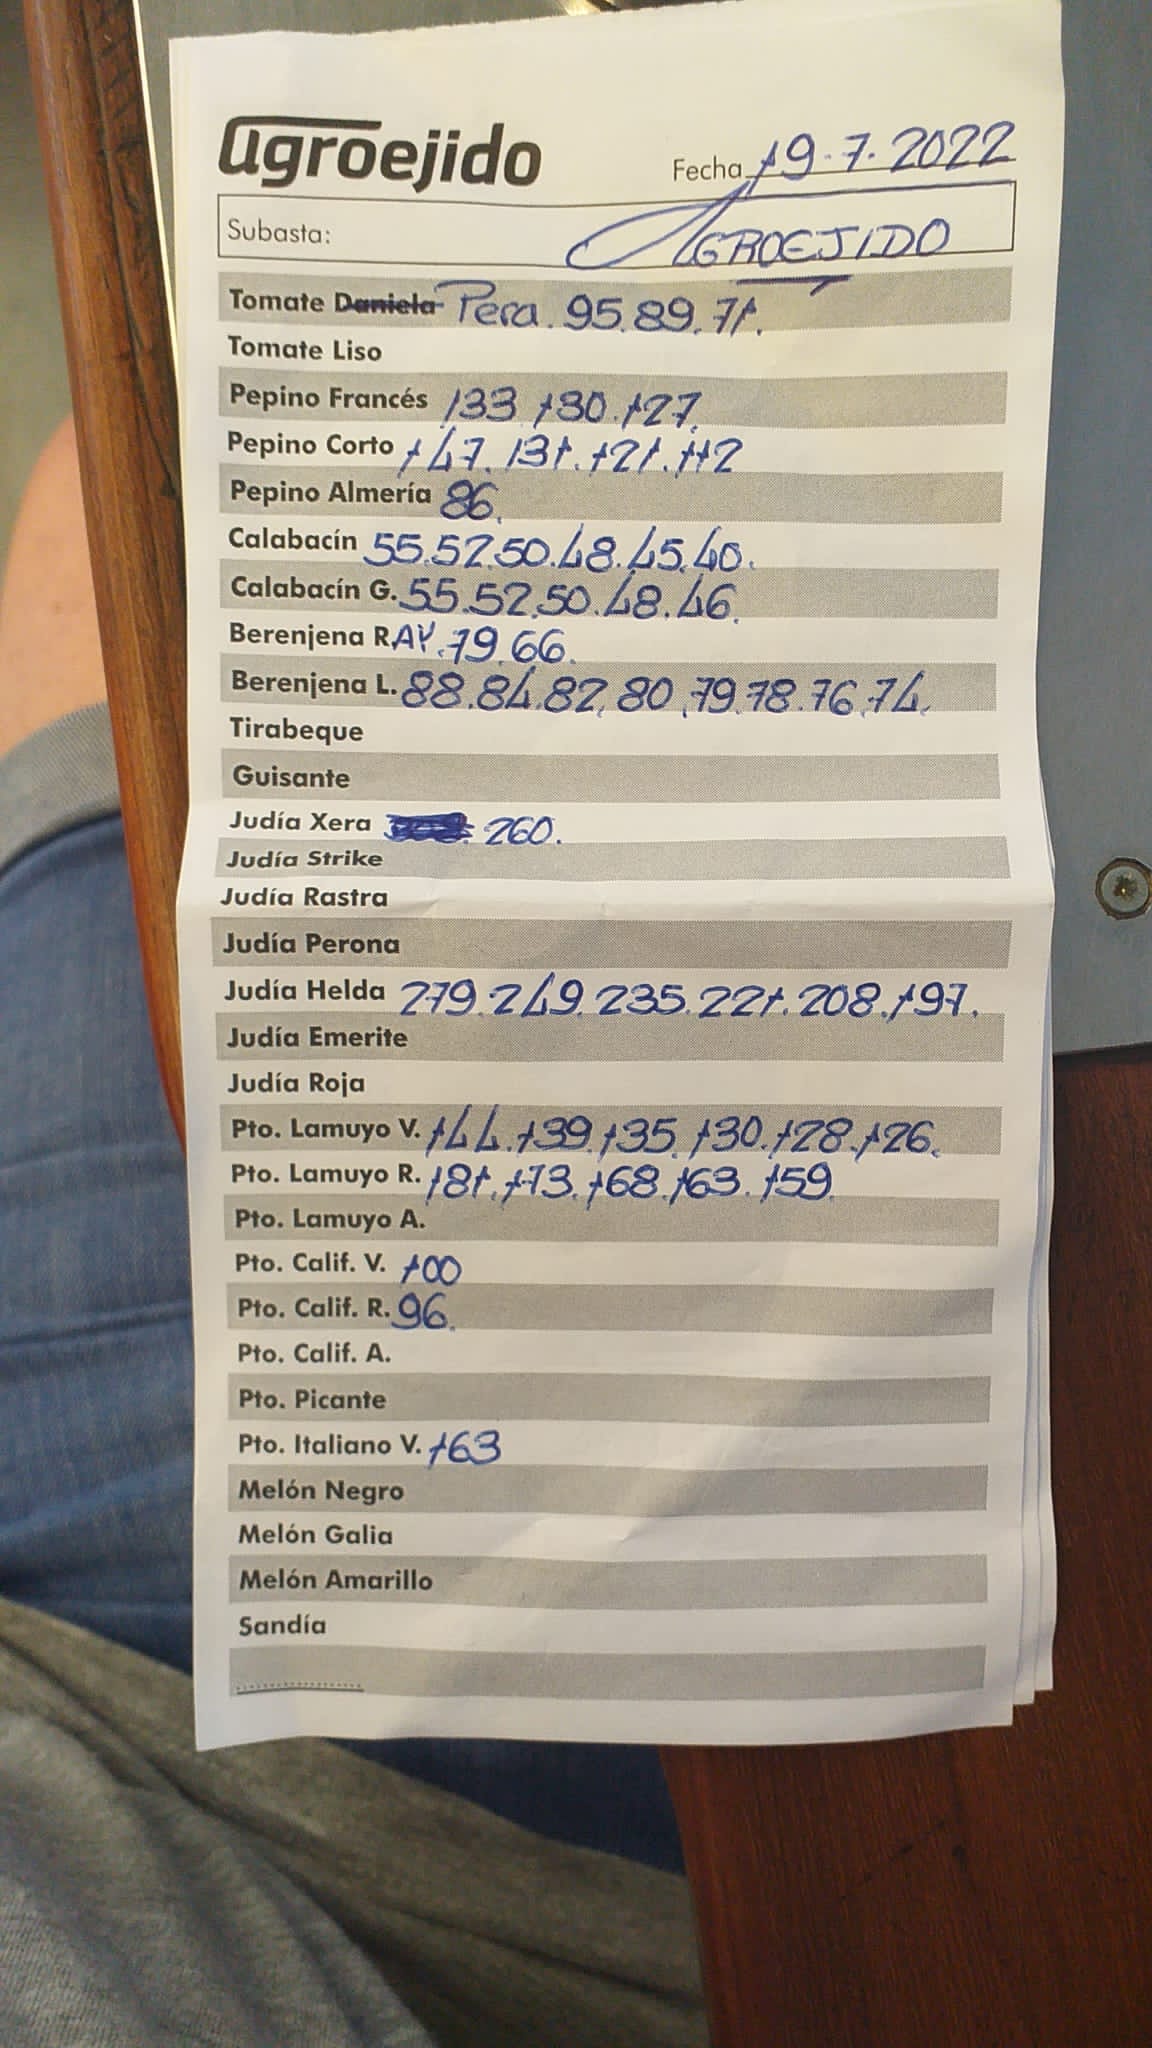 agroejido
Fecha 19-7-2022
Subasta: AGROEJIDO
Tomate Daniela Pera. 95.89.71.
Tomate Liso
Pepino Francés 133.130.127.
Pepino Corto 147.131.121.112
Pepino Almería 86.
Calabacín 55.52.50.48.45.40.
Calabacín G. 55.52.50.48.46.
Berenjena RAY.79.66.
Berenjena L. 88.84.82.80.79.78.76.74.
Tirabeque
Guisante
Judía Xera 260.
Judía Strike
Judía Rastra
Judía Perona
Judía Helda 279.249.235.221.208.197.
Judía Emerite
Judía Roja
Pto. Lamuyo V. 144.139.135.130.128.126.
Pto. Lamuyo R. 181.173.168.163.159
Pto. Lamuyo A.
Pto. Calif. V. 100
Pto. Calif. R. 96.
Pto. Calif. A.
Pto. Picante
Pto. Italiano V. 163
Melón Negro
Melón Galia
Melón Amarillo
Sandía